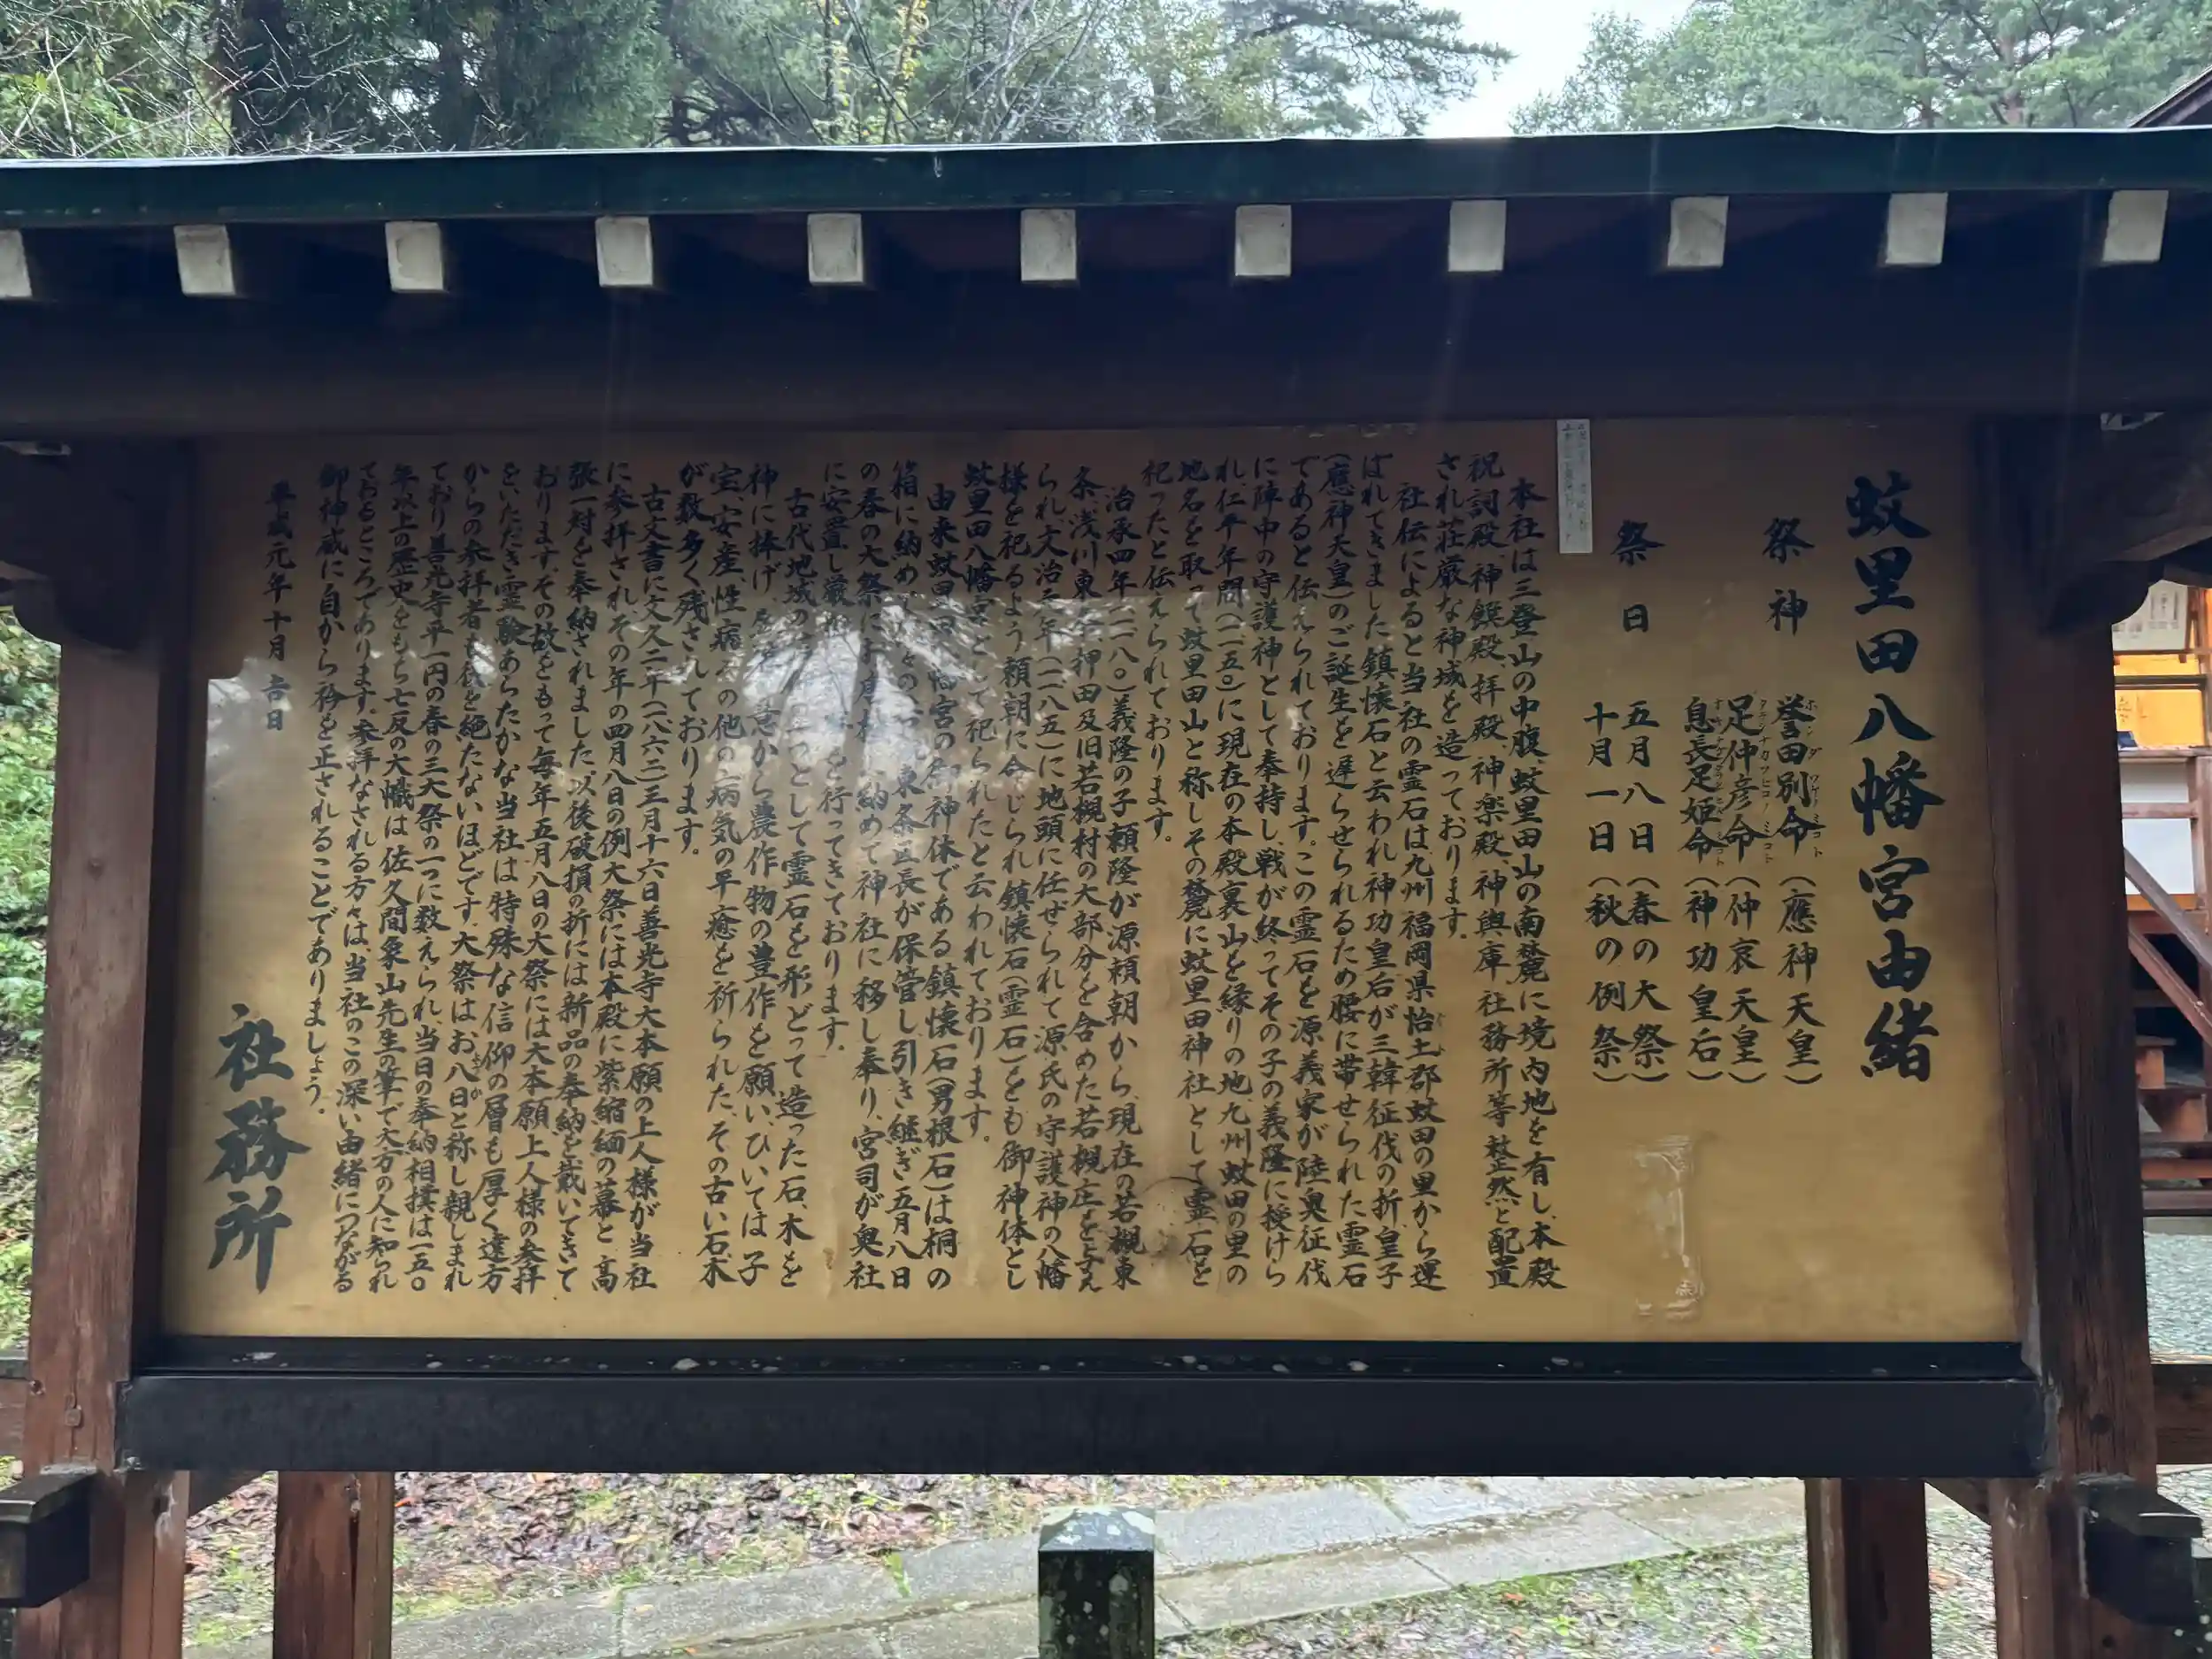 蚊里田八幡宮由緒
祭神
誉田別命（應神天皇）
足仲彦命（仲哀天皇）
息長足姫命（神功皇后）
祭日
五月八日（春の大祭）
十月一日（秋の例祭）
本社は三登山の中腹、蚊里田山の南麓に境内地を有し、本殿
祝詞殿、神饌殿、拝殿、神楽殿、神輿庫、社務所等整然と配置
され荘厳な神域を造っております。
社伝によると当社の霊石は、九州福岡県怡土郡蚊田の里から運
ばれてきました鎮懐石と云われ神功皇后が三韓征伐の折、皇子
（應神天皇）のご誕生を遅らせられるため腰に帯せられた霊石
であると伝えられております。この霊石を源義家が陸奥征伐
に陣中の守護神として奉持し、戦が終ってその子の義隆に授けら
れ、仁平年間（一一五〇）に現在の本殿裏山を縁りの地、九州蚊田の里の
地名を取って蚊里田山と称しその麓に蚊里田神社として霊石を
祀ったと伝えられております。
治承四年（一一八〇）義隆の子頼隆が源頼朝から、現在の若槻東
条、浅川東条、押田及旧若槻村の大部分を含めた若槻庄を与え
られ、文治元年（一一八五）に地頭に任ぜられて源氏の守護神の八幡
様を祀るよう頼朝に命じられ鎮懐石（霊石）をも御神体とし
蚊里田八幡宮として祀られたと云われております。
由来蚊里田八幡宮の御神体である鎮懐石（男根石）は桐の
箱に納め 東条区長が保管し、引き継ぎ五月八日
の春の大祭に 納めて神社に移し奉り、宮司が奥社
に安置し厳 を行ってきております。
古代地域の つとして霊石を形どって造った石、木を
神に捧げ、 意から農作物の豊作を願い、ひいては子
宝、安産、性病その他の病気の平癒を祈られた、その古い石、木
が数多く残されております。
古文書に文久二年（一八六二）三月十六日善光寺大本願の上人様が当社
に参拝され、その年の四月八日の例大祭には本殿に紫縮緬の幕と、高
張一対を奉納されました。以後破損の折には新品の奉納を戴いてきて
おります。その故をもって毎年五月八日の大祭には大本願上人様の参拝
をいただき霊験あらたかな当社は特殊な信仰の層も厚く遠方
からの参拝者も後を絶たないほどです。大祭はお八日と称し親しまれ
ており善光寺平一円の春の三大祭の一つに数えられ、当日の奉納相撲は一五〇
年以上の歴史をもち七反の大幟は佐久間象山先生の筆で大方の人に知られ
ておるところであります。参拝なされる方々は、当社のこの深い由緒につながる
御神威に自から衿を正されることでありましょう。
平成元年十月吉日
社務所